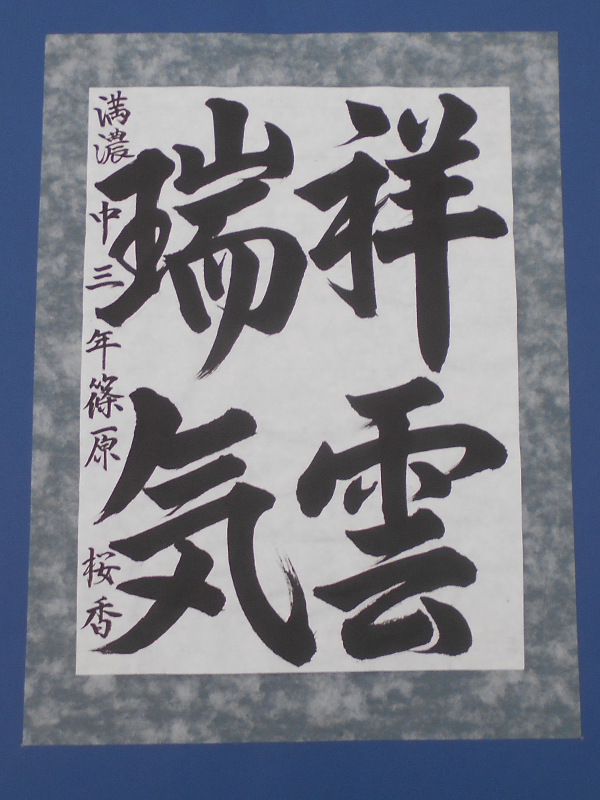 祥雲
瑞気
満濃中三年篠原桜香